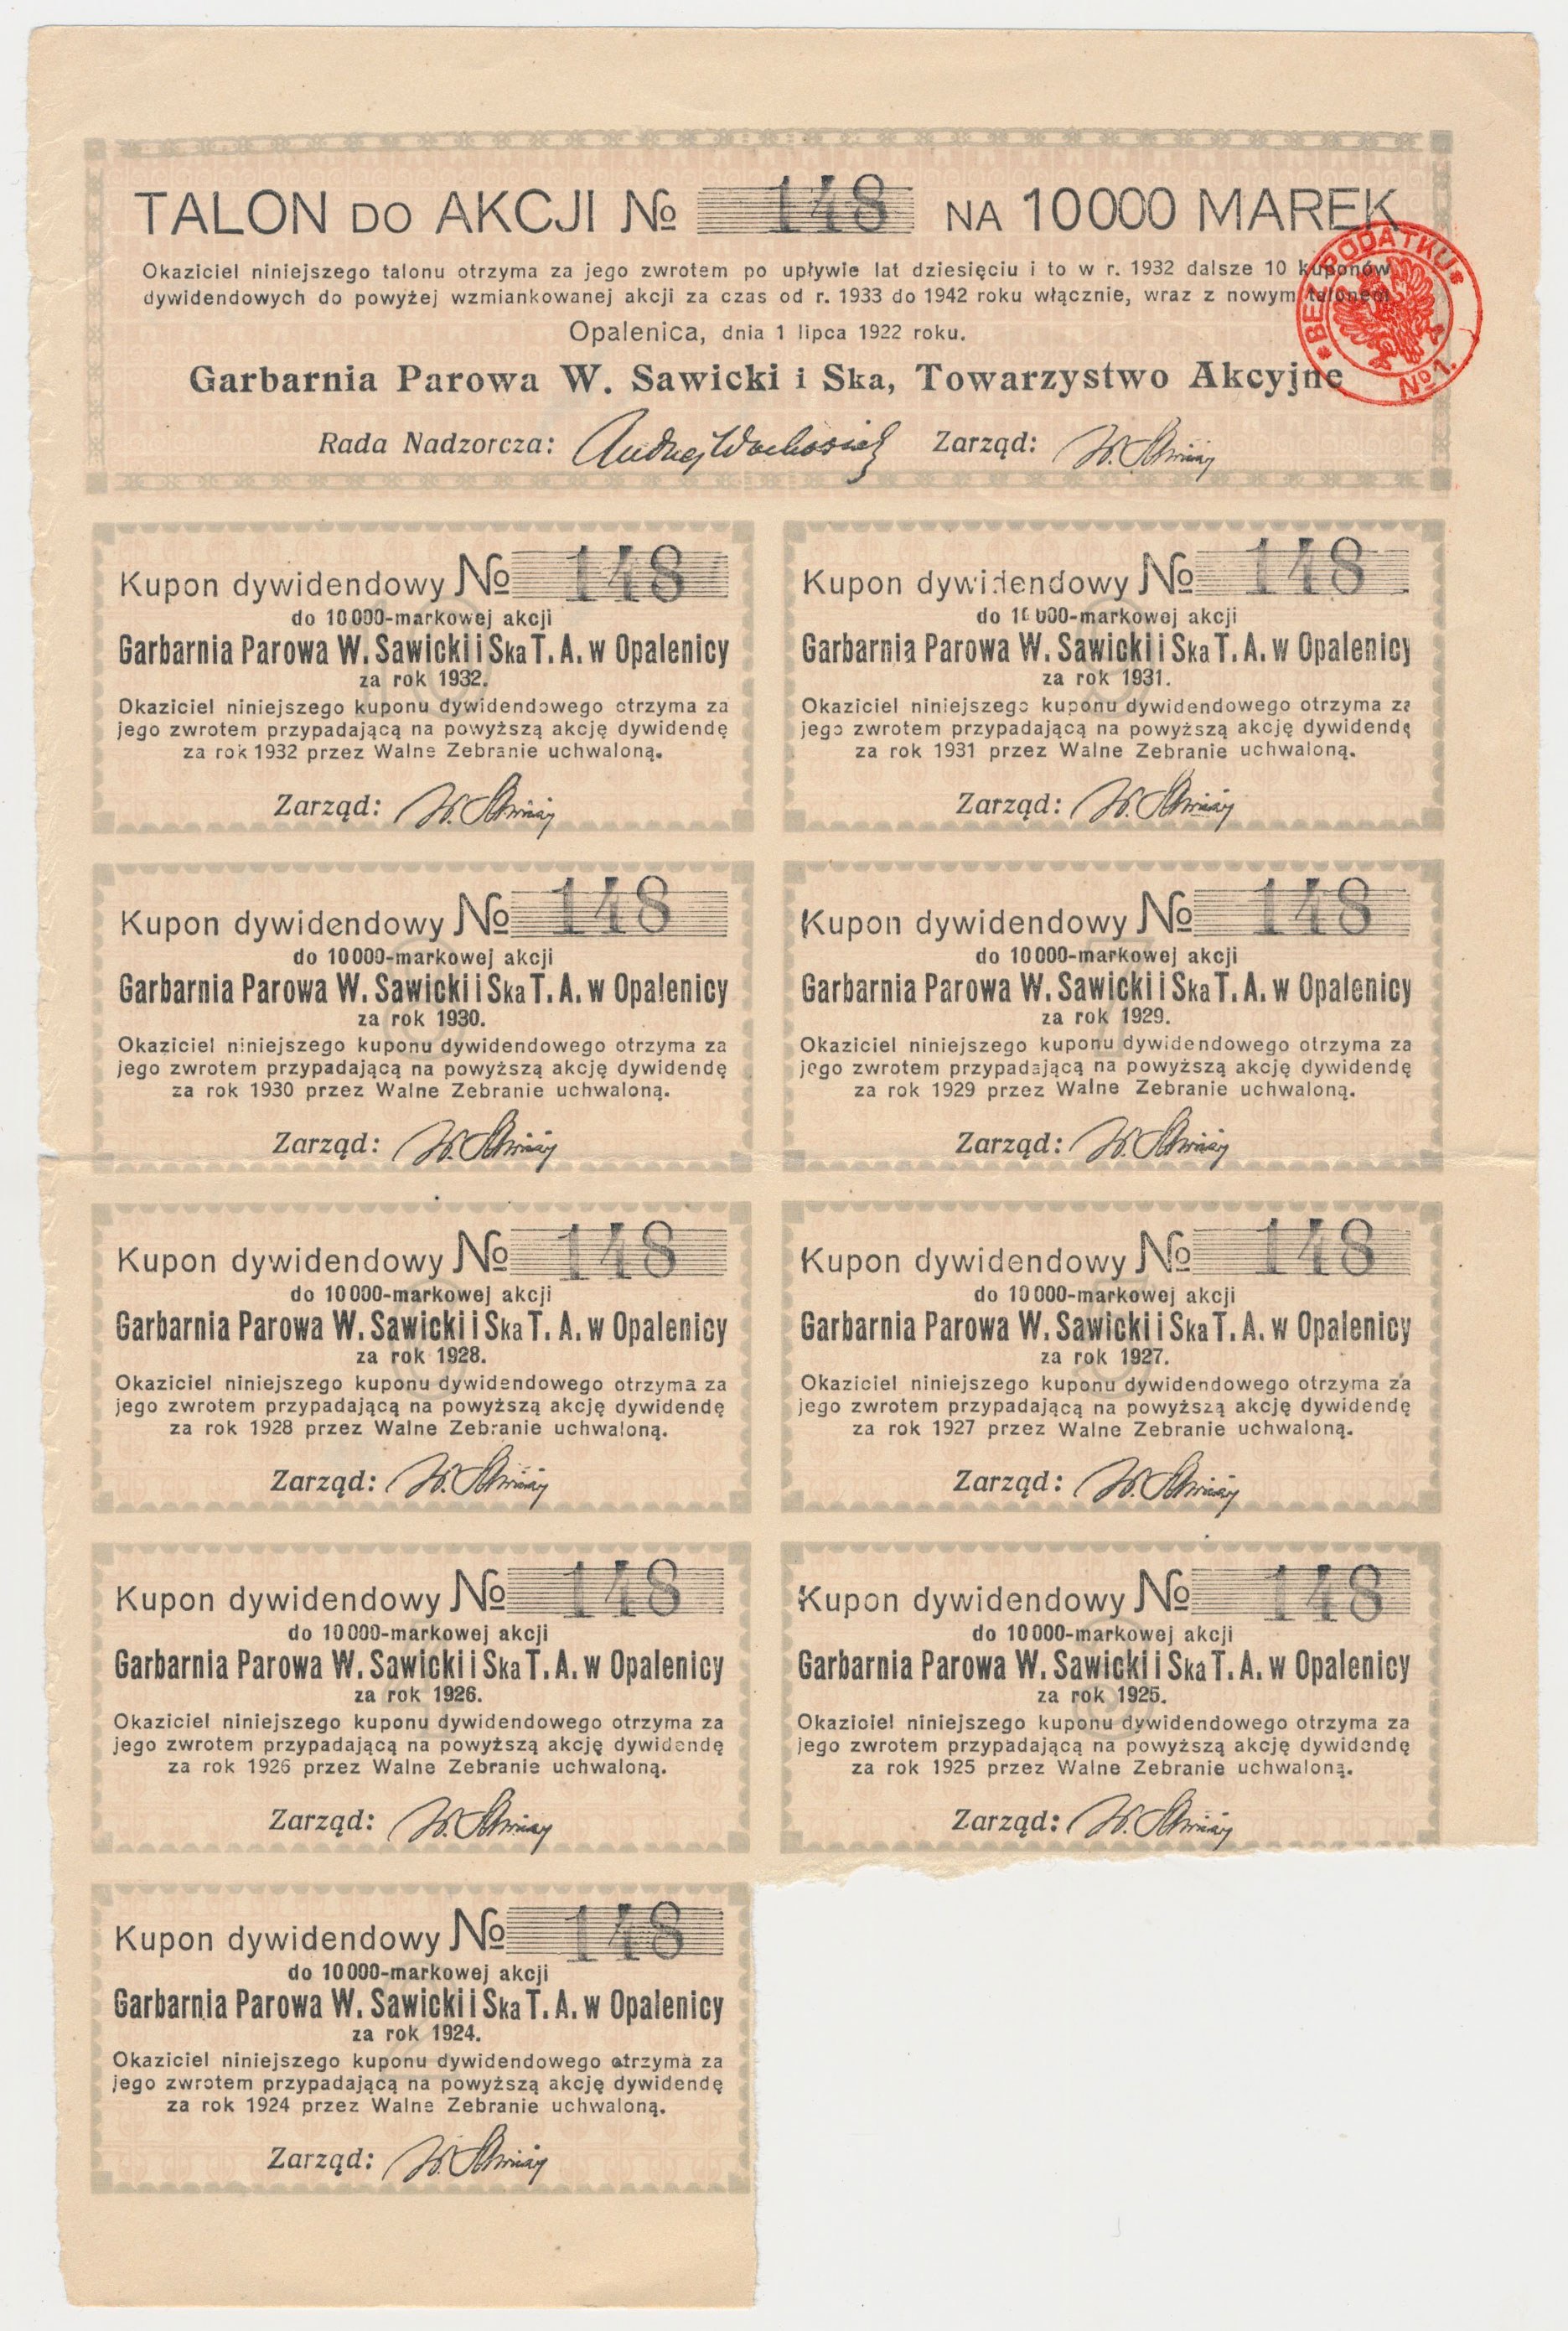 TALON DO AKCJI № 148 NA 10000 MAREK
Okaziciel niniejszego talonu otrzyma za jego zwrotem po upływie lat dziesięciu i to w r. 1932 dalsze 10 kuponów
dywidendowych do powyżej wzmiankowanej akcji za czas od r. 1933 do 1942 roku włącznie, wraz z nowym talonem
* BEZ PODATKU * № 1.
Opalenica, dnia 1 lipca 1922 roku.
Garbarnia Parowa W. Sawicki i Ska, Towarzystwo Akcyjne
Rada Nadzorcza: Zarząd:
Kupon dywidendowy № 148
do 10000-markowej akcji
Garbarnia Parowa W. Sawicki i Ska T. A. w Opalenicy
za rok 1932.
Okaziciel niniejszego kuponu dywidendowego otrzyma za
jego zwrotem przypadającą na powyższą akcję dywidendę
za rok 1932 przez Walne Zebranie uchwaloną.
Zarząd:
Kupon dywidendowy № 148
do 10000-markowej akcji
Garbarnia Parowa W. Sawicki i Ska T. A. w Opalenicy
za rok 1931.
Okaziciel niniejszego kuponu dywidendowego otrzyma za
jego zwrotem przypadającą na powyższą akcję dywidendę
za rok 1931 przez Walne Zebranie uchwaloną.
Zarząd:
Kupon dywidendowy № 148
do 10000-markowej akcji
Garbarnia Parowa W. Sawicki i Ska T. A. w Opalenicy
za rok 1930.
Okaziciel niniejszego kuponu dywidendowego otrzyma za
jego zwrotem przypadającą na powyższą akcję dywidendę
za rok 1930 przez Walne Zebranie uchwaloną.
Zarząd:
Kupon dywidendowy № 148
do 10000-markowej akcji
Garbarnia Parowa W. Sawicki i Ska T. A. w Opalenicy
za rok 1929.
Okaziciel niniejszego kuponu dywidendowego otrzyma za
jego zwrotem przypadającą na powyższą akcję dywidendę
za rok 1929 przez Walne Zebranie uchwaloną.
Zarząd:
Kupon dywidendowy № 148
do 10000-markowej akcji
Garbarnia Parowa W. Sawicki i Ska T. A. w Opalenicy
za rok 1928.
Okaziciel niniejszego kuponu dywidendowego otrzyma za
jego zwrotem przypadającą na powyższą akcję dywidendę
za rok 1928 przez Walne Zebranie uchwaloną.
Zarząd:
Kupon dywidendowy № 148
do 10000-markowej akcji
Garbarnia Parowa W. Sawicki i Ska T. A. w Opalenicy
za rok 1927.
Okaziciel niniejszego kuponu dywidendowego otrzyma za
jego zwrotem przypadającą na powyższą akcję dywidendę
za rok 1927 przez Walne Zebranie uchwaloną.
Zarząd:
Kupon dywidendowy № 148
do 10000-markowej akcji
Garbarnia Parowa W. Sawicki i Ska T. A. w Opalenicy
za rok 1926.
Okaziciel niniejszego kuponu dywidendowego otrzyma za
jego zwrotem przypadającą na powyższą akcję dywidendę
za rok 1926 przez Walne Zebranie uchwaloną.
Zarząd:
Kupon dywidendowy № 148
do 10000-markowej akcji
Garbarnia Parowa W. Sawicki i Ska T. A. w Opalenicy
za rok 1925.
Okaziciel niniejszego kuponu dywidendowego otrzyma za
jego zwrotem przypadającą na powyższą akcję dywidendę
za rok 1925 przez Walne Zebranie uchwaloną.
Zarząd:
Kupon dywidendowy № 148
do 10000-markowej akcji
Garbarnia Parowa W. Sawicki i Ska T. A. w Opalenicy
za rok 1924.
Okaziciel niniejszego kuponu dywidendowego otrzyma za
jego zwrotem przypadającą na powyższą akcję dywidendę
za rok 1924 przez Walne Zebranie uchwaloną.
Zarząd: